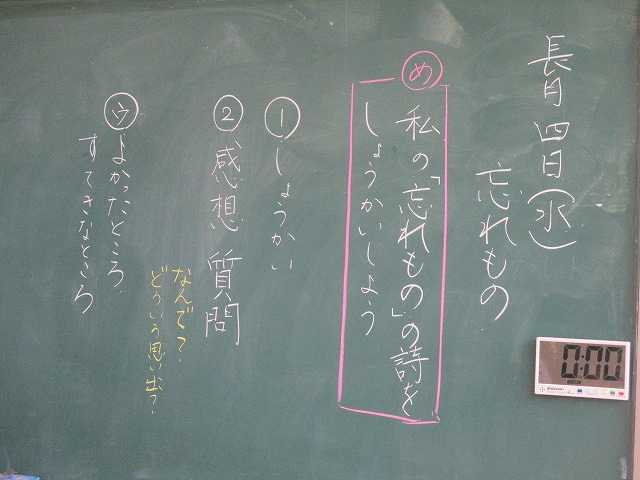 長月 四日(水)
忘れもの
め 私の「忘れもの」の詩を
しょうかいしよう
① しょうかい
② 感想 質問
なんで?
どういう思い出?
ウ よかったところ
すてきなところ
0:00